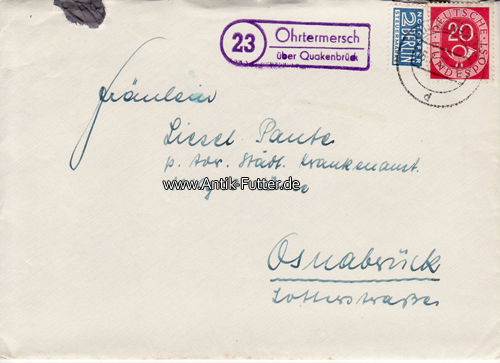 23
Ohrtermersch
über Quakenbrück
NOTOPFER
2 BERLIN
STEUERMARKE
DEUTSCHE
20
BUNDESPOST
Fräulein
Liesel Pante
p. Adr. Städt. Krankenanst.
www.Antik-Futter.de
Osnabrück
Lotterstraße